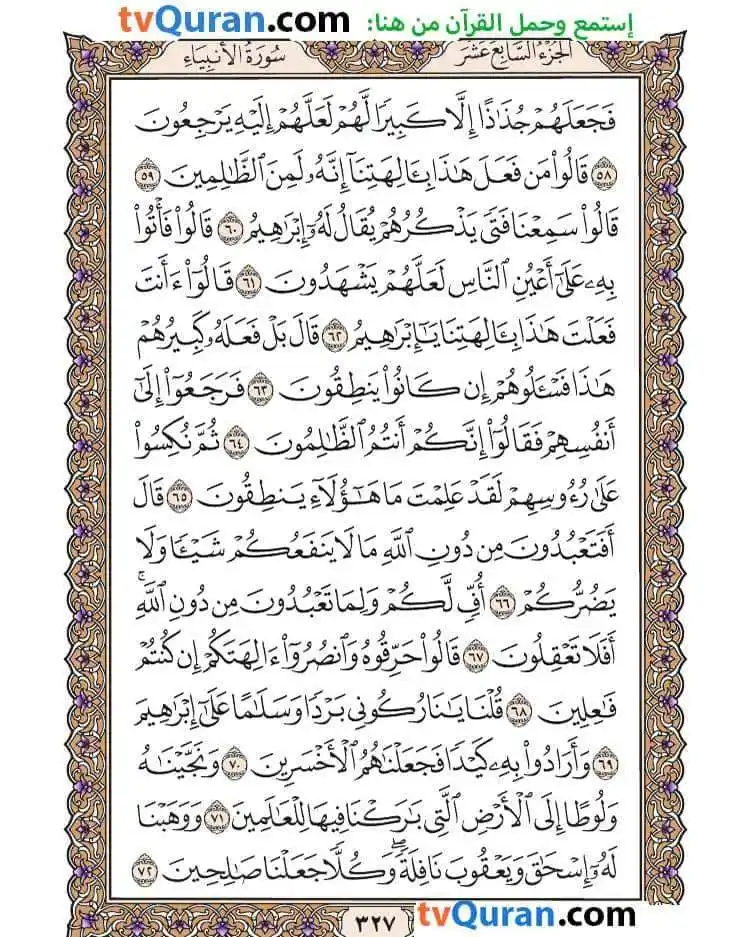 tvQuran.com إستمع وحمل القرآن من هنا:
الجزء السابع عشر
سورة الأنبياء
فَجَعَلَهُمْ جُذَٰذًا إِلَّا كَبِيرًا لَّهُمْ لَعَلَّهُمْ إِلَيْهِ يَرْجِعُونَ
٥٨ قَالُوا۟ مَن فَعَلَ هَٰذَا بِـَٔالِهَتِنَآ إِنَّهُۥ لَمِنَ ٱلظَّٰلِمِينَ ٥٩
قَالُوا۟ سَمِعْنَا فَتًى يَذْكُرُهُمْ يُقَالُ لَهُۥٓ إِبْرَٰهِيمُ ٦٠ قَالُوا۟ فَأْتُوا۟
بِهِۦ عَلَىٰٓ أَعْيُنِ ٱلنَّاسِ لَعَلَّهُمْ يَشْهَدُونَ ٦١ قَالُوٓا۟ ءَأَنتَ
فَعَلْتَ هَٰذَا بِـَٔالِهَتِنَا يَٰٓإِبْرَٰهِيمُ ٦٢ قَالَ بَلْ فَعَلَهُۥ كَبِيرُهُمْ
هَٰذَا فَسْـَٔلُوهُمْ إِن كَانُوا۟ يَنطِقُونَ ٦٣ فَرَجَعُوٓا۟ إِلَىٰٓ
أَنفُسِهِمْ فَقَالُوٓا۟ إِنَّكُمْ أَنتُمُ ٱلظَّٰلِمُونَ ٦٤ ثُمَّ نُكِسُوا۟
عَلَىٰ رُءُوسِهِمْ لَقَدْ عَلِمْتَ مَا هَٰٓؤُلَآءِ يَنطِقُونَ ٦٥ قَالَ
أَفَتَعْبُدُونَ مِن دُونِ ٱللَّهِ مَا لَا يَنفَعُكُمْ شَيْـًٔا وَلَا
يَضُرُّكُمْ ٦٦ أُفٍّ لَّكُمْ وَلِمَا تَعْبُدُونَ مِن دُونِ ٱللَّهِ ۖ
أَفَلَا تَعْقِلُونَ ٦٧ قَالُوا۟ حَرِّقُوهُ وَٱنصُرُوٓا۟ ءَالِهَتَكُمْ إِن كُنتُمْ
فَٰعِلِينَ ٦٨ قُلْنَا يَٰنَارُ كُونِى بَرْدًا وَسَلَٰمًا عَلَىٰٓ إِبْرَٰهِيمَ
٦٩ وَأَرَادُوا۟ بِهِۦ كَيْدًا فَجَعَلْنَٰهُمُ ٱلْأَخْسَرِينَ ٧٠ وَنَجَّيْنَٰهُ
وَلُوطًا إِلَى ٱلْأَرْضِ ٱلَّتِى بَٰرَكْنَا فِيهَا لِلْعَٰلَمِينَ ٧١ وَوَهَبْنَا
لَهُۥٓ إِسْحَٰقَ وَيَعْقُوبَ نَافِلَةً ۖ وَكُلًّا جَعَلْنَا صَٰلِحِينَ ٧٢
٣٢٧
tvQuran.com